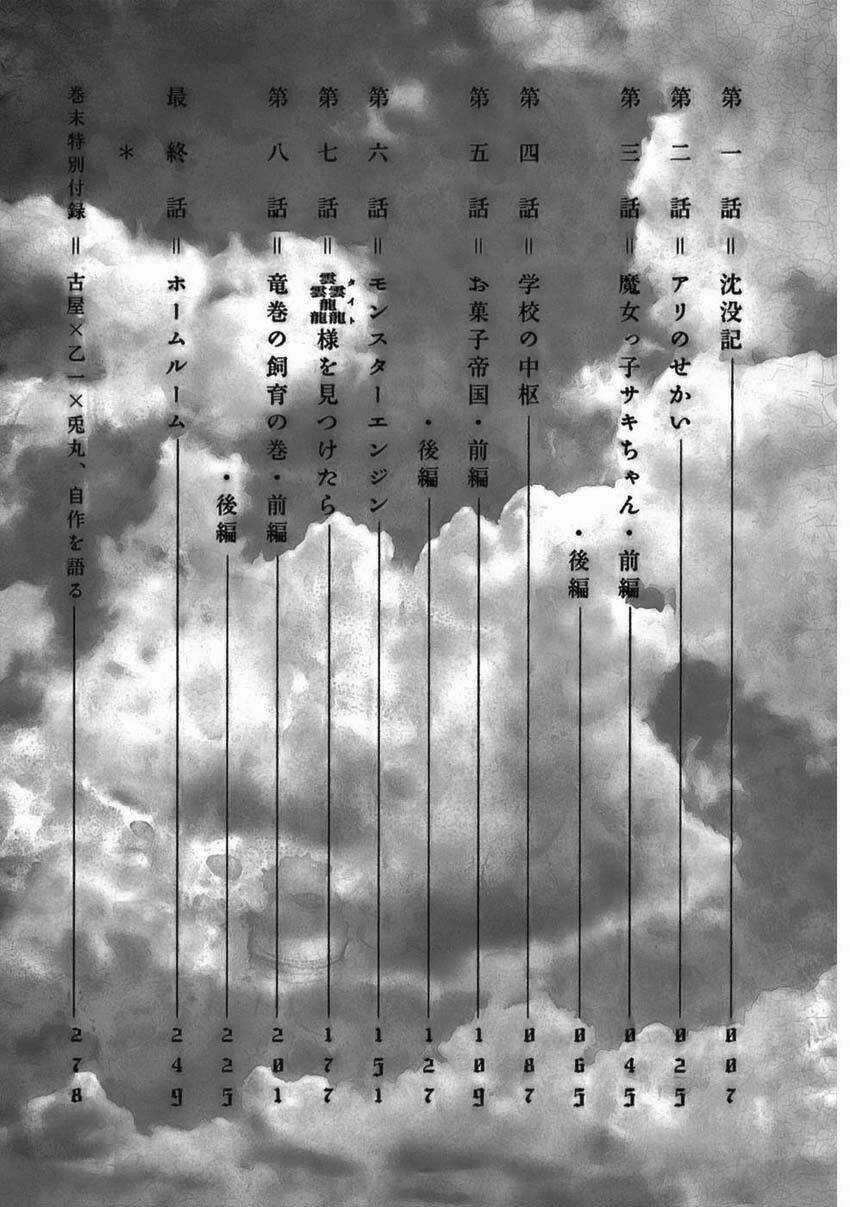 第一話＝沈没記 007
第二話＝アリのせかい 025
第三話＝魔女っ子サキちゃん・前編 045
・後編 065
第四話＝学校の中枢 087
第五話＝お菓子帝国・前編 109
・後編 127
第六話＝モンスターエンジン 151
タイト
第七話＝雲雲雲龍龍龍様を見つけたら 177
第八話＝竜巻の飼育の巻・前編 201
・後編 225
最終話＝ホームルーム 249
＊
巻末特別付録＝古屋×乙一×兎丸、自作を語る 278